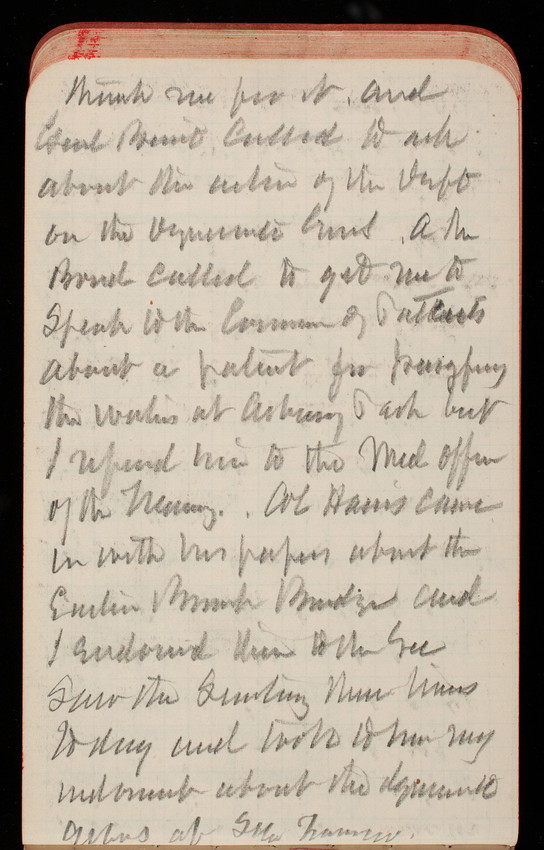 thank me for it. and
Genl called to ask
about the action of the Dept
on the dynamite Guns. A Mr
Bond called to get me to
speak to the Commr of Patents
about a patent for purifying
the waters at Asbury Park but
I referred him to the Med Officer
of the Treasury. Col Hains came
in with his papers about the
Eastern Branch Bridge and
I endorsed them to the Sec
Saw the Secretary three times
today and took to him my
indorsmt about the dynamite
at San Francisco.